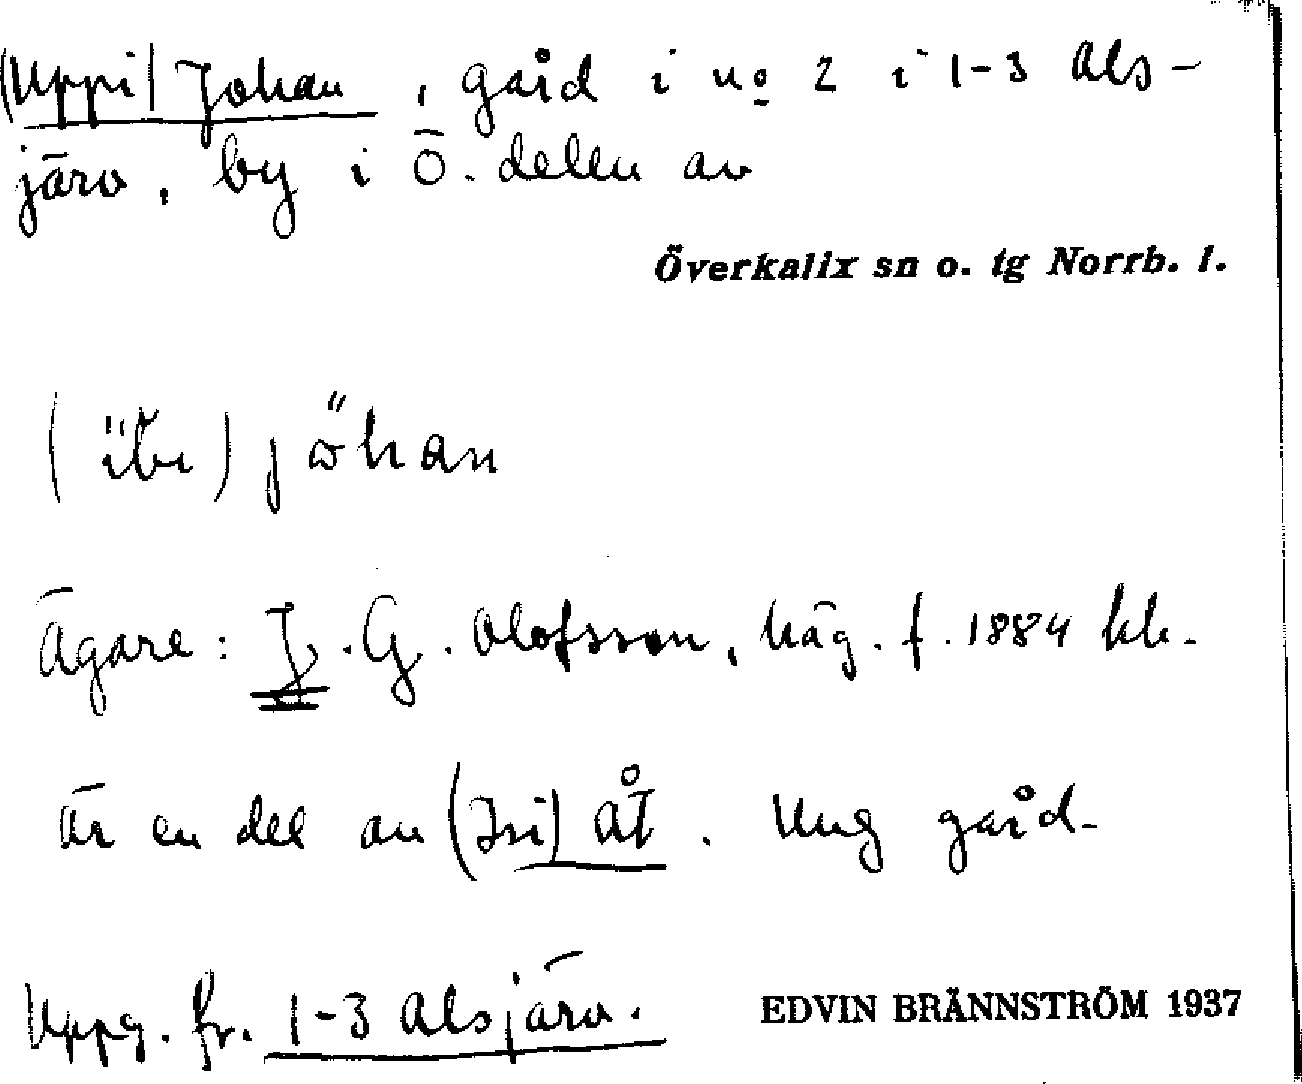 (Uppi) Johan, gård i no 2 i 1-3 Als-
järv, by i Ö. delen av
Överkalix sn o. tg Norrb. l.
jöhan
Ägare: J. G. Olofsson, häg. f. 1884 hh.
Är en del av (Isi) åt. Ung gård.
Uppg. fr. 1-3 Alsjärv.
EDVIN BRÄNNSTRÖM 1937